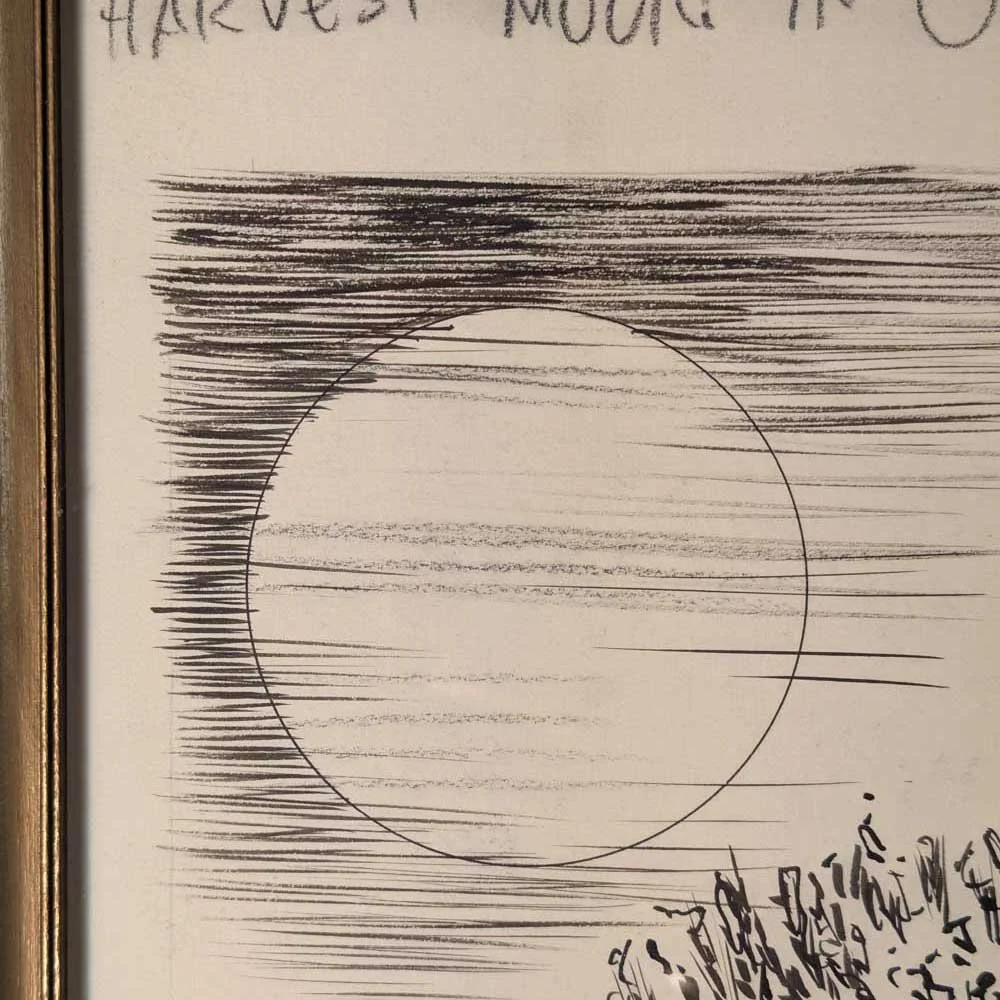 HARVEST MOON IN